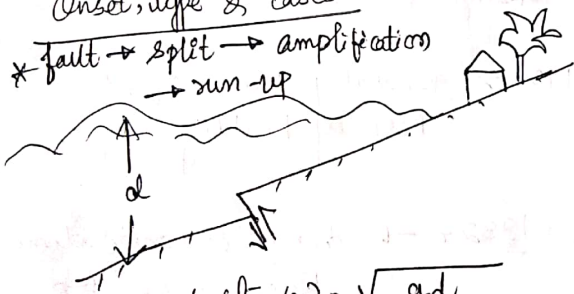 Onset, type & cause
* fault → split → amplification
→ run-up
d
√gd